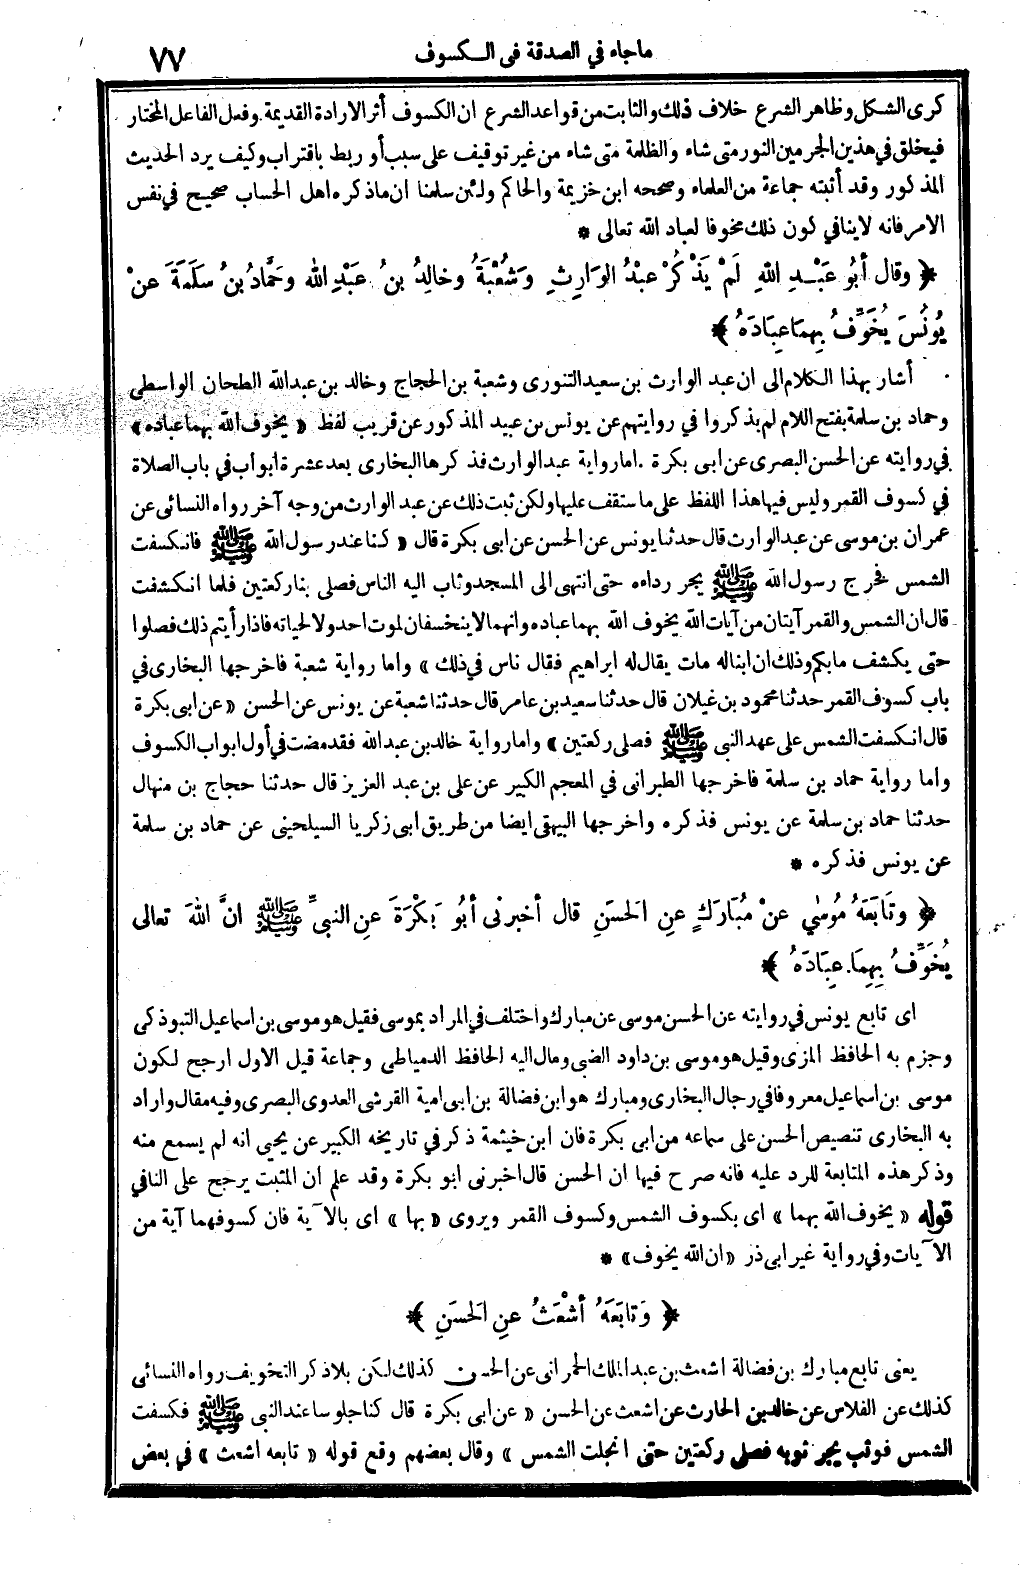 ماجاء في الصدقة فى الـكسوف ٧٧
كرى الشكل وظاهر الشرع خلاف ذلك والثابت من قواعد الشرع ان الكسوف أثر الارادة القديمة وفعل الفاعل المختار
فيخلق في هذين الجرمين النور متى شاه والظلمة متى شاه من غير توقيف على سبب أو ربط باقتراب وكيف يرد الحديث
المذكور وقد أثبته جماعة من العلماء وصححه ابن خزيمة والحاكم ولئن سلمنا ان ماذكره اهل الحساب صحيح في نفس
الامر فانه لا ينافي كون ذلك مخوفا لعباد الله تعالى *
﴿ وقال أبُو عَبْـدِ اللهِ لَمْ يَذْكُرْ عبْدُ الوَارِثِ وَشُعْبَةُ وخالِدُ بنُ عبْدِ الله وحَمَّادُ بنُ سَلَمَةَ عنْ
يُونُسَ يُخَوِّفُ بِهِمَا عِبَادَهُ ﴾
أشار بهذا الكلام الى ان عبد الوارث بن سعيد التنورى وشعبة بن الحجاج وخالد بن عبدالله الطحان الواسطى
وحماد بن سلمة بفتح اللام لم يذكروا في روايتهم عن يونس بن عبيد المذكور عن قريب لفظ « يخوف الله بهما عباده »
في روايته عن الحسن البصرى عن ابى بكرة . اما رواية عبد الوارث فذكرها البخارى بعد عشرة ابواب في باب الصلاة
في كسوف القمر وليس فيها هذا اللفظ على ما ستقف عليها ولكن ثبت ذلك عن عبد الوارث من وجه آخر رواه النسائى عن
عمران بن موسى عن عبد الوارث قال حدثنا يونس عن الحسن عن ابى بكرة قال « كنا عند رسول الله ﷺ فانكسفت
الشمس فخرج رسول الله ﷺ يجر رداءه حتى انتهى الى المسجد وثاب اليه الناس فصلى بنا ركعتين فلما انكشفت
قال ان الشمس والقمر آيتان من آيات الله يخوف الله بهما عباده وانهما لا ينخسفان لموت احد ولا لحياته فاذا رأيتم ذلك فصلوا
حتى يكشف ما بكم وذلك ان ابنا له مات يقال له ابراهيم فقال ناس في ذلك » واما رواية شعبة فاخرجها البخارى في
باب كسوف القمر حدثنا محمود بن غيلان قال حدثنا سعيد بن عامر قال حدثنا شعبة عن يونس عن الحسن « عن ابى بكرة
قال انكسفت الشمس على عهد النبى ﷺ فصلى ركعتين » واما رواية خالد بن عبد الله فقد مضت في أول ابواب الكسوف
واما رواية حماد بن سلمة فاخرجها الطبرانى في المعجم الكبير عن على بن عبد العزيز قال حدثنا حجاج بن منهال
حدثنا حماد بن سلمة عن يونس فذكره واخرجها البيهقى ايضا من طريق ابى زكريا السيلحينى عن حماد بن سلمة
عن يونس فذكره *
﴿ وتَابَعَهُ مُوسَى عنْ مُبَارَكٍ عنِ الحَسَنِ قال أخبرنى أبُو بَكْرَةَ عنِ النبىِّ ﷺ انَّ اللهَ تعالى
يُخَوِّفُ بِهِمَا عِبَادَهُ ﴾
اى تابع يونس في روايته عن الحسن موسى عن مبارك واختلف في المراد بموسى فقيل هو موسى بن اسماعيل التبوذكى
وجزم به الحافظ المزى وقيل هو موسى بن داود الضبى ومال اليه الحافظ الدمياطى وجماعة قيل الاول ارجح لكون
موسى بن اسماعيل معروفا في رجال البخارى ومبارك هو ابن فضالة بن ابى امية القرشى العدوى البصرى وفيه مقال واراد
به البخارى تنصيص الحسن على سماعه من ابى بكرة فان ابن خيثمة ذكر في تاريخه الكبير عن يحيى انه لم يسمع منه
وذكر هذه المتابعة للرد عليه فانه صرح فيها ان الحسن قال اخبرنى ابو بكرة وقد علم ان المثبت يرجح على النافي
قوله « يخوف الله بهما » اى بكسوف الشمس وكسوف القمر ويروى « بها » اى بالآية فان كسوفهما آية من
الآيات وفي رواية غير ابى ذر « ان الله يخوف » *
﴿ وَتَابَعَهُ أشْعَثُ عنِ الحَسَنِ ﴾
يعنى تابع مبارك بن فضالة اشعث بن عبد الملك الحمرانى عن الحسن كذلك لكن بلا ذكر التخويف رواه النسائى
كذلك عن الفلاس عن خالد بن الحارث عن اشعث عن الحسن « عن ابى بكرة قال كنا جلوسا عند النبى ﷺ فكسفت
الشمس فوثب يجر ثوبه فصلى ركعتين حتى انجلت الشمس » وقال بعضهم وقع قوله « تابعه اشعث » في بعض